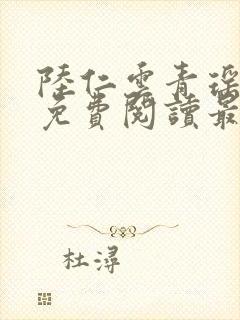 陸仁雲青瑤
免費閱讀最
杜潯